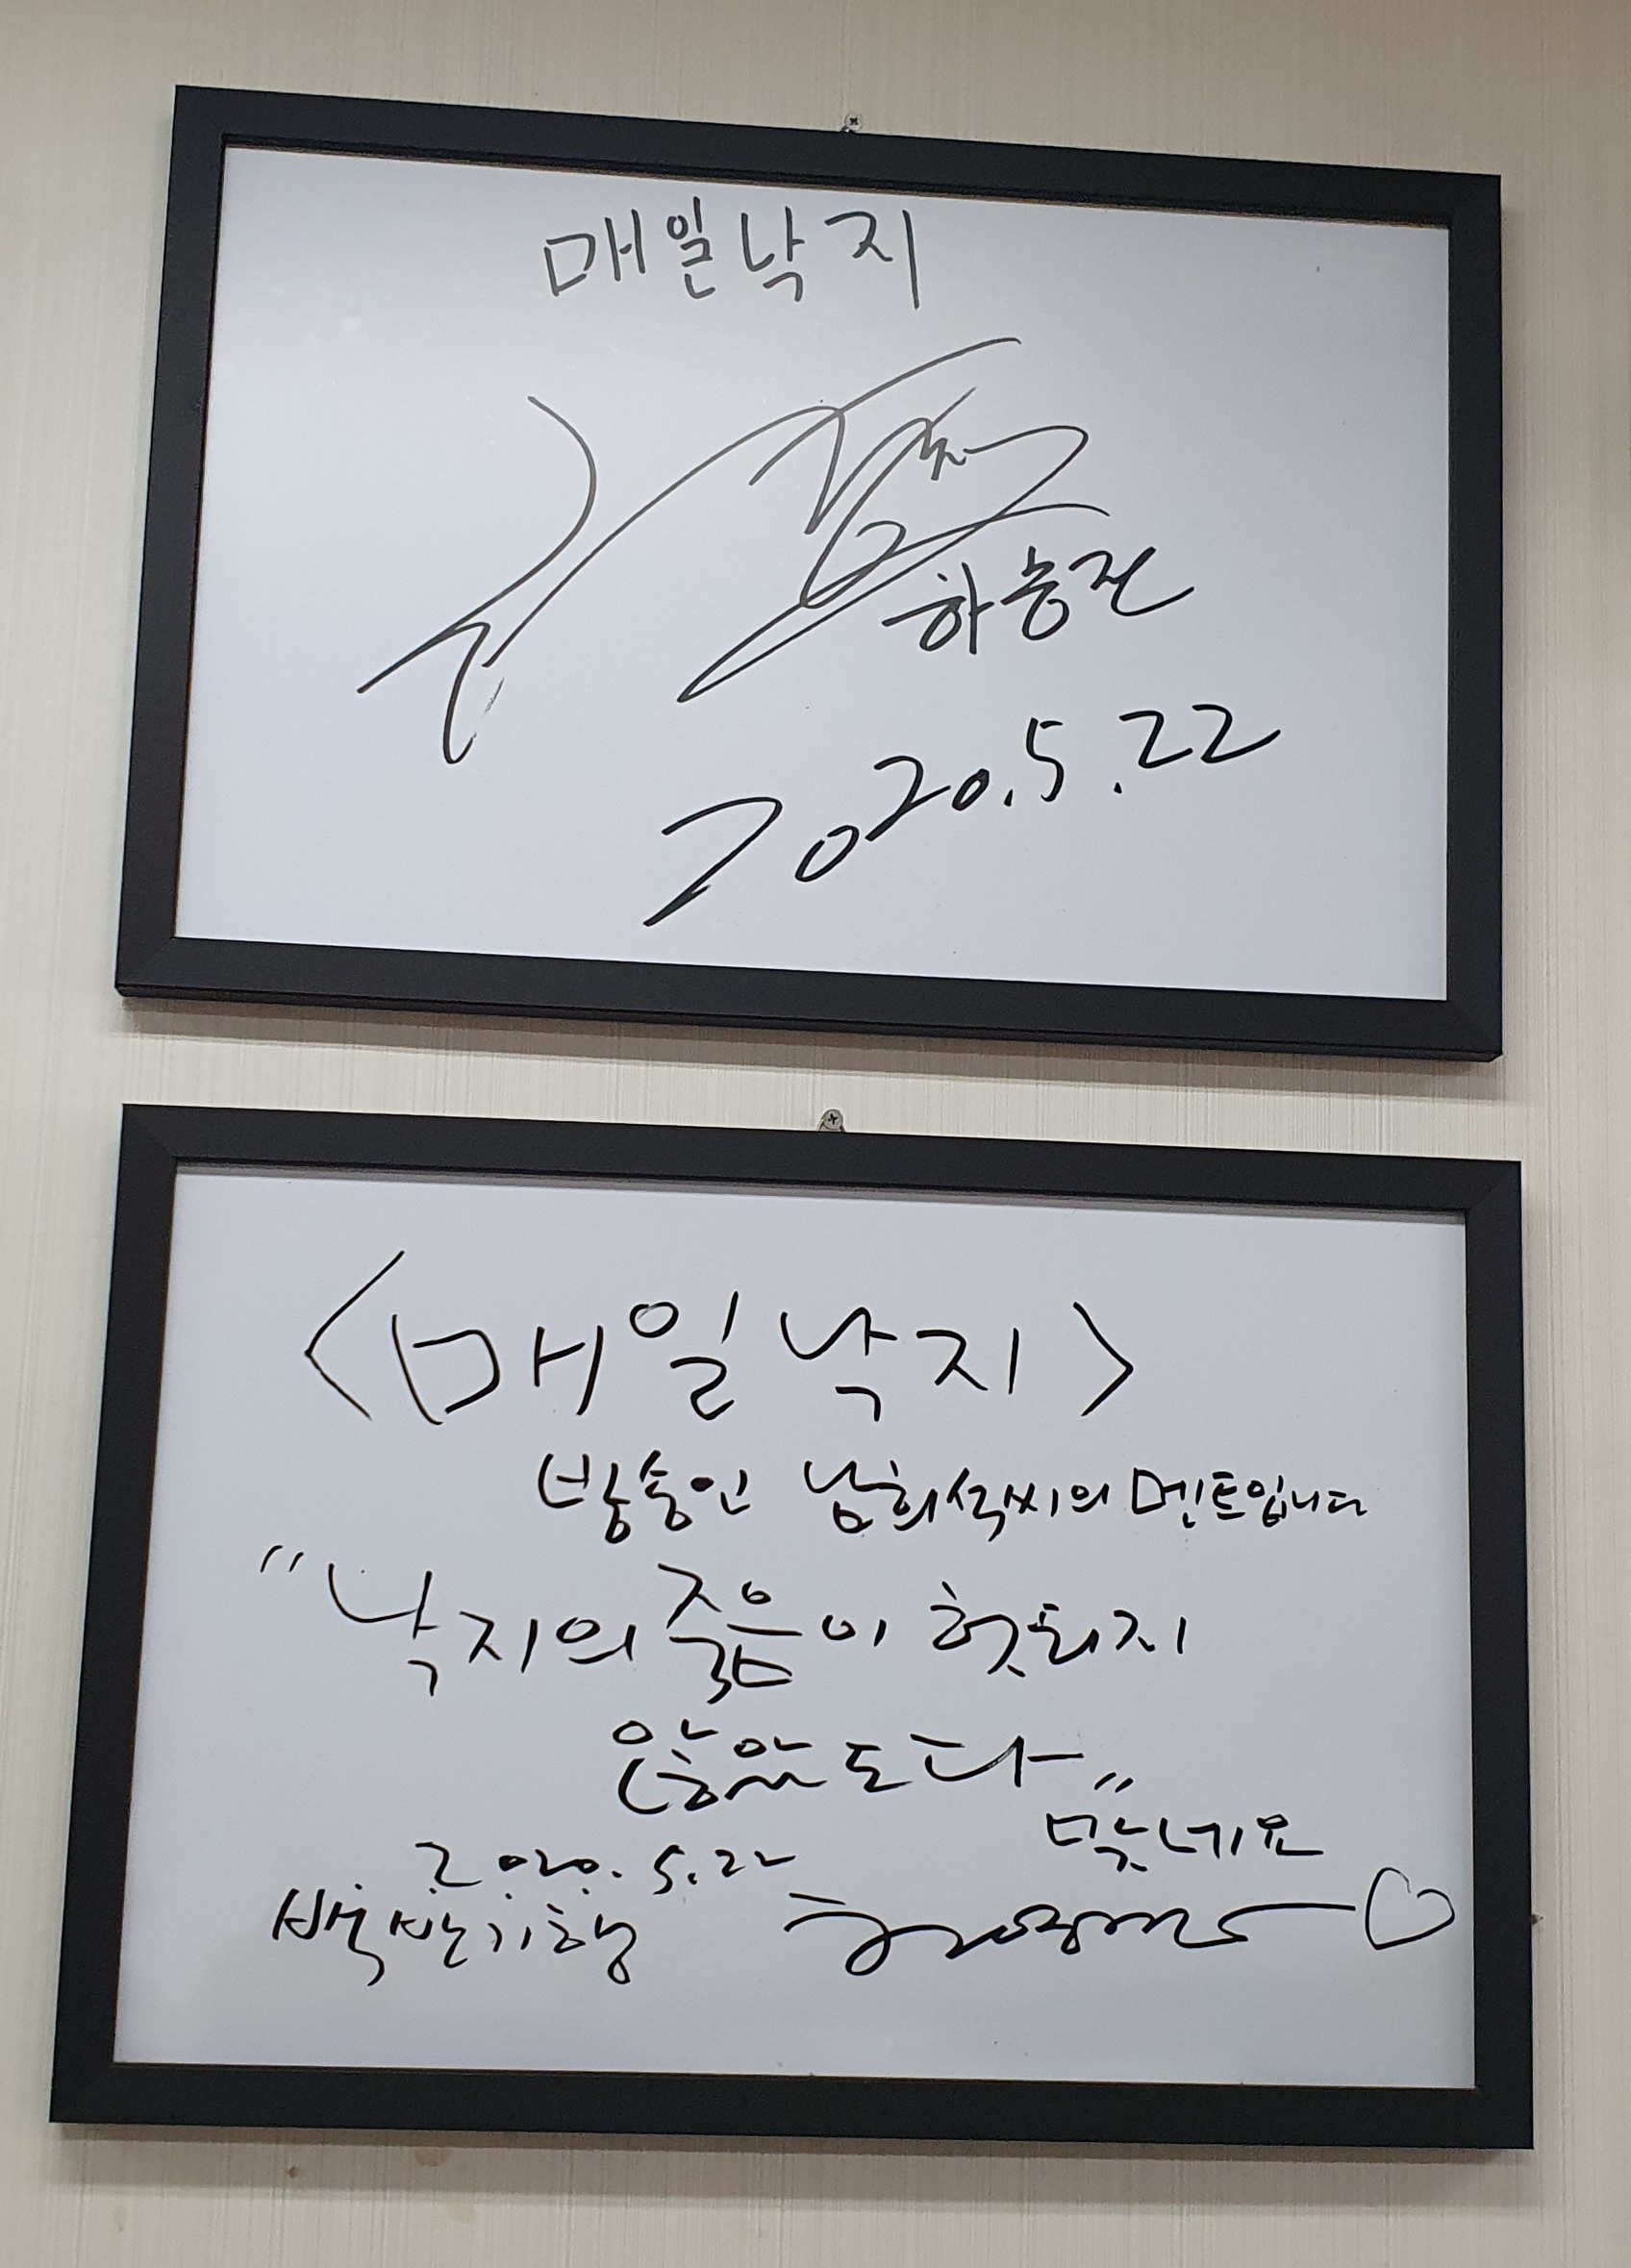 매일낙지
하승진
2020.5.22
<매일낙지>
방송인 남희석씨의 멘트입니다
"낙지의 죽음이 헛되지
않았도다"
맞네요
2020.5.22
백반기행